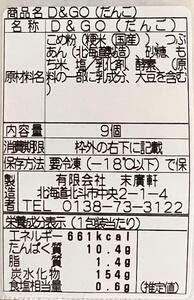 商品名 D&GO(だんご)
名称 D&GO(だんご)
こめ粉(粳米(国産))、つぶ
あん(北海道製造)、砂糖、も
ち米、塩、乳化剤、酵素、(原
原材料名 料の一部に乳成分、大豆を含む
)
内容量 9個
消費期限 枠外の右下に記載
保存方法 要冷凍(−18℃以下)で保
製造者 有限会社 末廣軒
北海道北斗市中央2-1-4
TEL 0138-73-3122
栄養成分表示(1包装当たり)
エネルギー 661kcal
たんぱく質 10.4g
脂質 1.4g
炭水化物 154g
食塩相当量 0.6g(推定値)